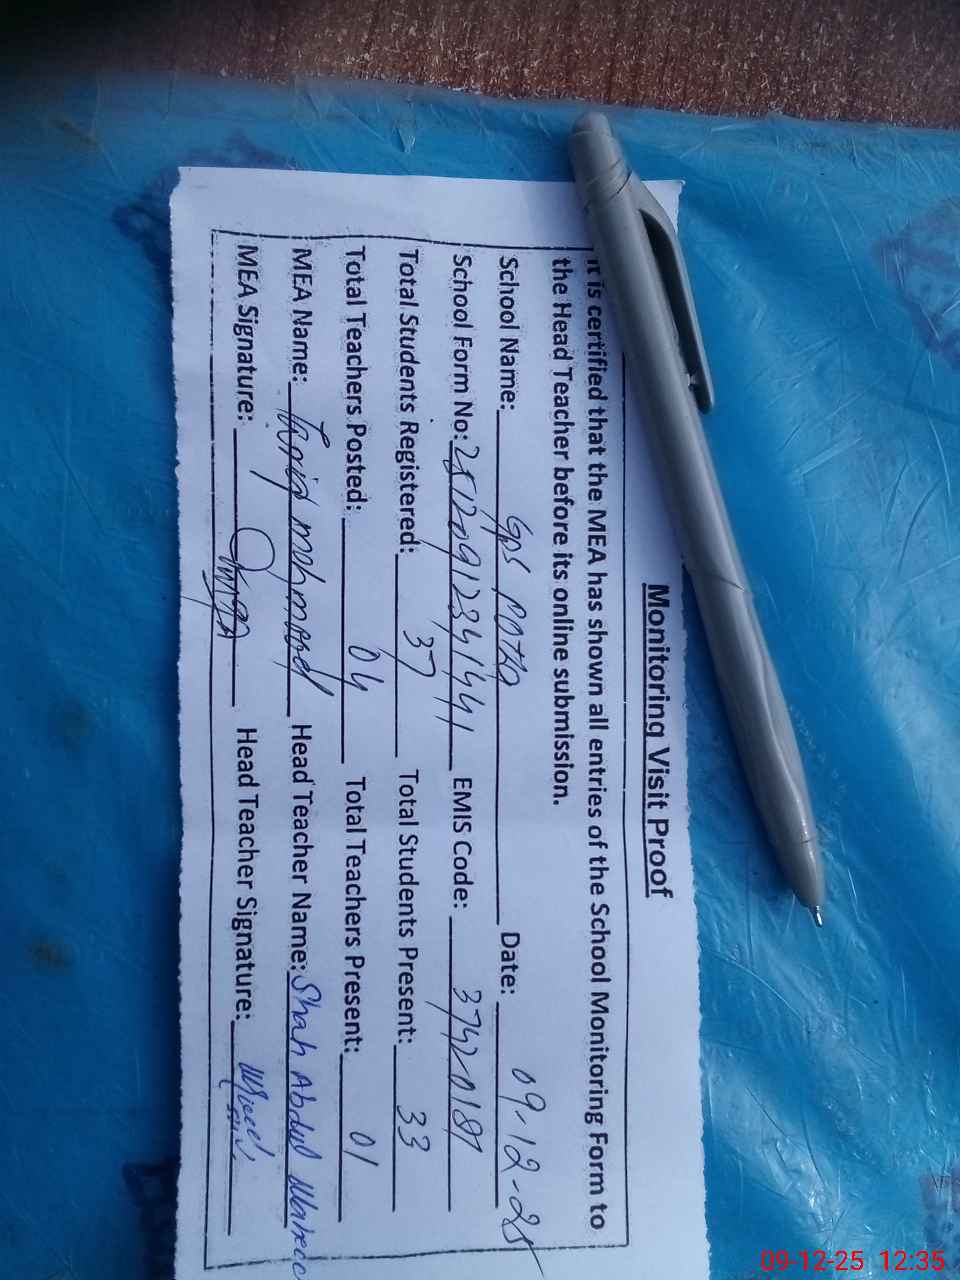 Monitoring Visit Proof
It is certified that the MEA has shown all entries of the School Monitoring Form to
the Head Teacher before its online submission.
School Name: GPS Date: 09-12-25
School Form No: EMIS Code: 37420181
Total Students Registered: 37 Total Students Present: 33
Total Teachers Posted: 04 Total Teachers Present: 01
MEA Name: mehmood Head Teacher Name: Shah Abdul
MEA Signature: Head Teacher Signature:
09-12-25 12:35